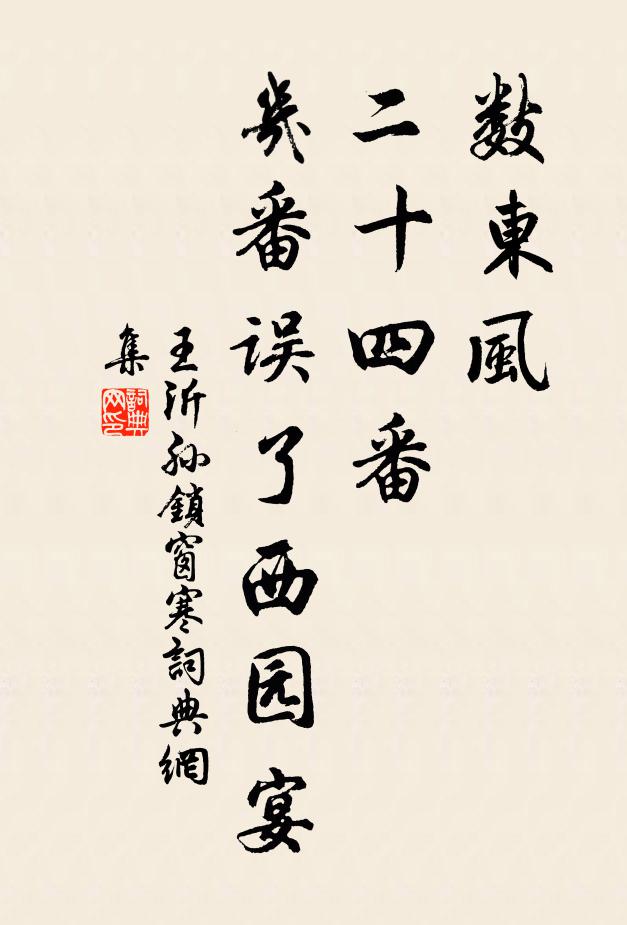 数東風
二十四番
幾番误了西园宴
王沂孙鎖窗寒詞典網
集
詞典
网印